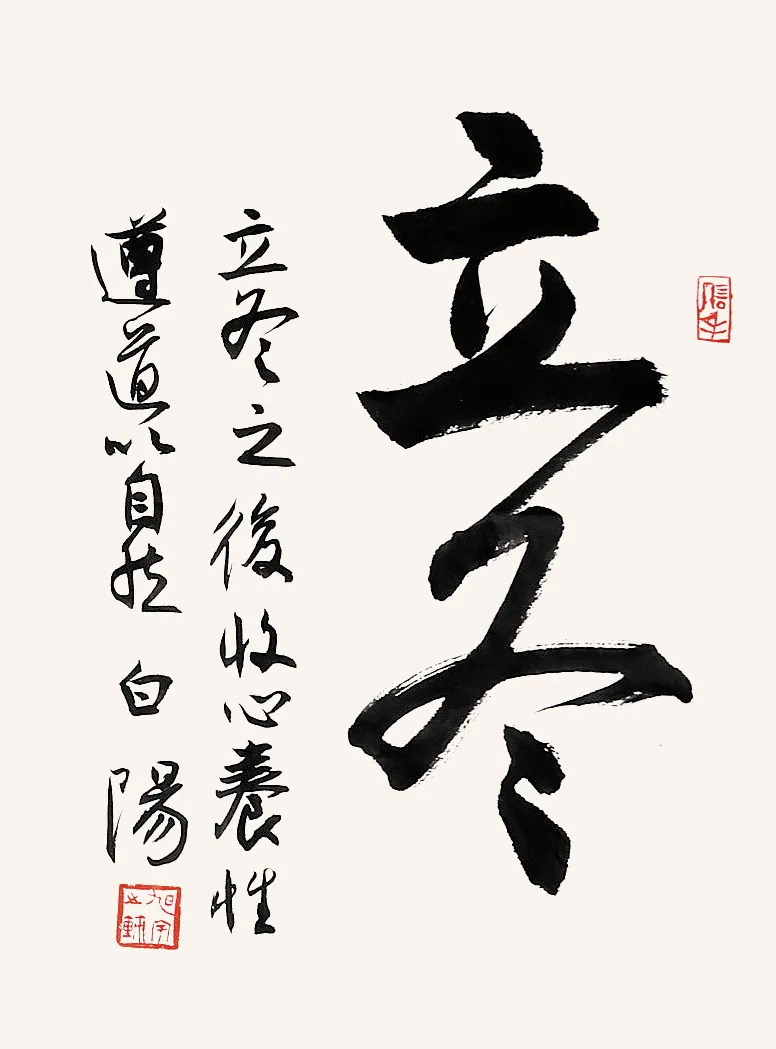 立冬
立冬之後收心養性
遵道以自然 白陽
旭宇之軒